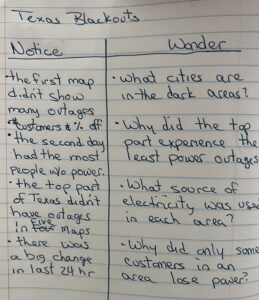 Texas Blackouts
Notice
• the first map
didn't show
many outages
* customers & % off
• the second day
had the most
people w/o power.
• the top part
of Texas didn't
have outages
in five maps
• there was
a big change
in last 24 hr
Wonder
• What cities are
in the dark areas?
• Why did the top
part experience the
least power outages
• What source of
electricity was used
in each area?
• Why did only some
customers in an
area lose power?